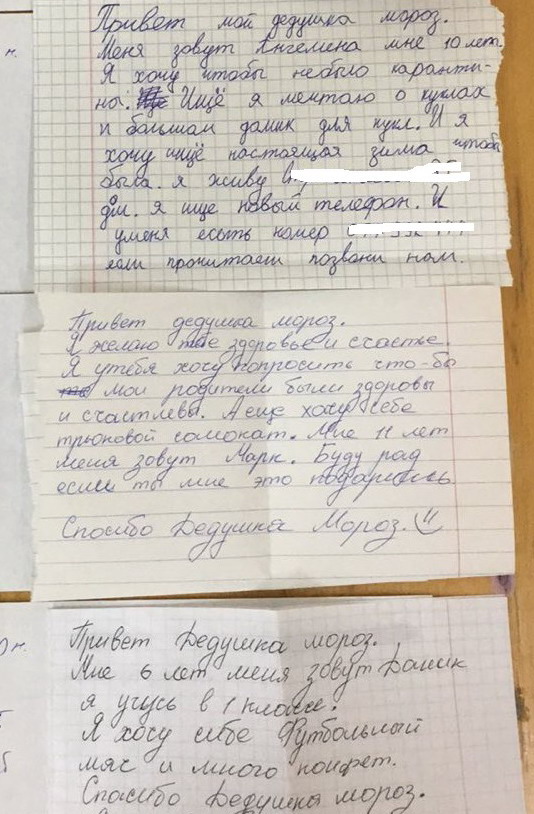 Привет мой дедушка мороз.
н.
Меня зовут Ангелина мне 10 лет.
Я хочу чтобы небыло каранти-
на. Ищё я мечтаю о куклах
и большом домик для кукл. И я
хочу ищё настоящая зима чтобы
была. я живу
дм. я ище новый телефон. И
уменя есоть номер
если прочитаеш позвони нам.
Привет дедушка мороз.
Я желаю тебе здоровье и счастье.
Я утебя хочу попросить что-бы
мои родители были здоровы
и счастлевы. А еще хочу себе
трюковой самокат. Мне 11 лет
меня зовут Марк. Буду рад
если ты мне это подаришь
Спасибо Дедушка Мороз.
Привет Дедушка мороз.
Мне 6 лет меня зовут Даник
я учусь в 1 классе.
Я хочу себе Футбольный
мяч и много конфет.
Спасибо Дедушка мороз.